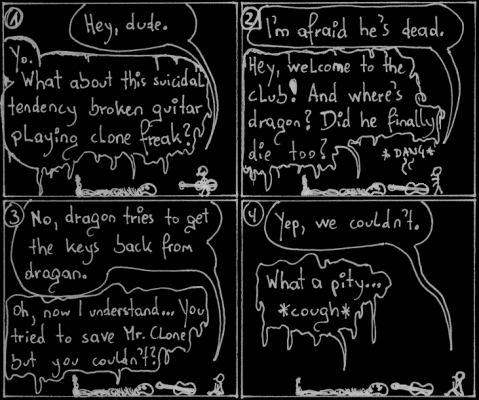 1
Hey, dude.
Yo.
What about this suicidal
tendency broken guitar
playing clone freak?
2
I'm afraid he's dead.
Hey, welcome to the
club! And where's
dragon? Did he finally
die too?
*DANG*
3
No, dragon tries to get
the keys back from
dragan.
Oh, now I understand... You
tried to save Mr. Clone
but you couldn't?
4
Yep, we couldn't.
What a pity...
*cough*